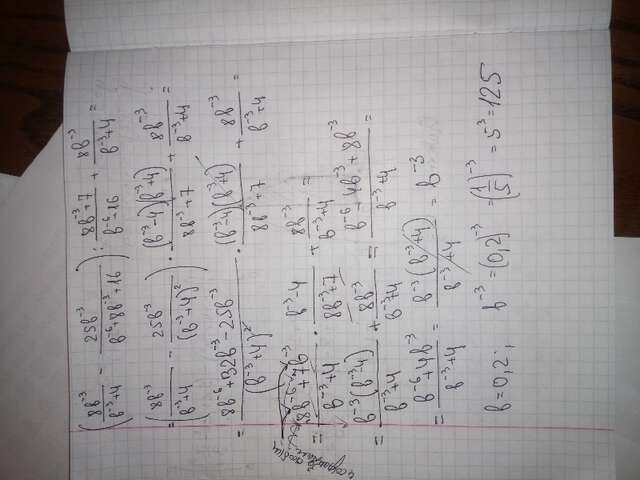 (8b⁻³/(b⁻³+4) - 25b⁻³/(b⁻⁶+8b⁻³+16)) : (8b⁻³+7)/(b⁻⁶-16) + 8b⁻³/(b⁻³+4) =
= (8b⁻³/(b⁻³+4) - 25b⁻³/(b⁻³+4)²) · (b⁻³-4)(b⁻³+4)/(8b⁻³+7) + 8b⁻³/(b⁻³+4) =
= (8b⁻⁶+32b⁻³-25b⁻³)/(b⁻³+4)² · (b⁻³-4)(b⁻³+4)/(8b⁻³+7) + 8b⁻³/(b⁻³+4) =
= (8b⁻⁶+7b⁻³)/(b⁻³+4) · (b⁻³-4)/(8b⁻³+7) + 8b⁻³/(b⁻³+4) =
= b⁻³(b⁻³-4)/(b⁻³+4) + 8b⁻³/(b⁻³+4) = (b⁻⁶-4b⁻³+8b⁻³)/(b⁻³+4) =
= (b⁻⁶+4b⁻³)/(b⁻³+4) = b⁻³(b⁻³+4)/(b⁻³+4) = b⁻³
b=0,2; b⁻³=(0,2)⁻³=(1/5)⁻³=5⁻³=125